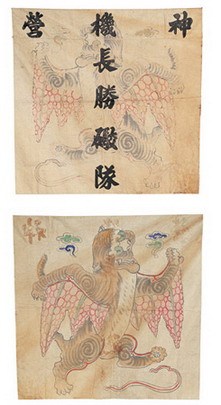 神機營
長勝礮隊